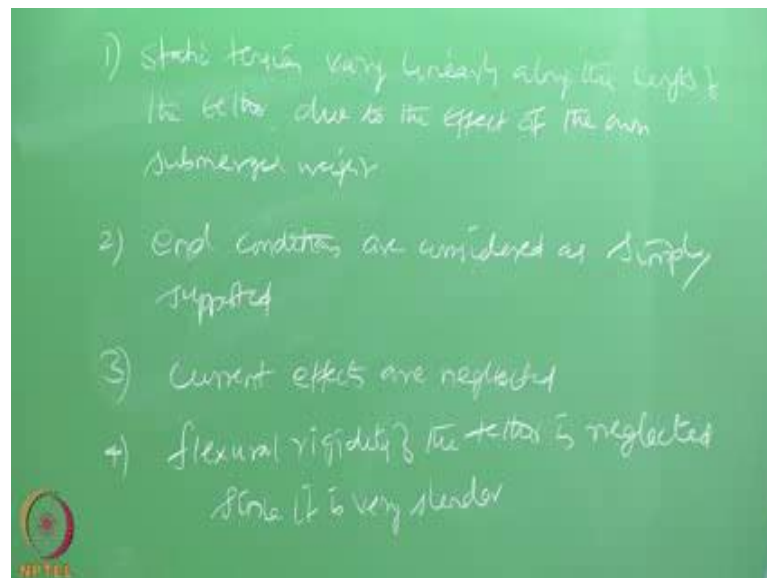 1) static tension vary linearly along the length of
the tether due to the effect of the own
submerged weight
2) end conditions are considered as simply
supported
3) Current effects are neglected
4) flexural rigidity of the tether is neglected
since it is very slender
NPTEL